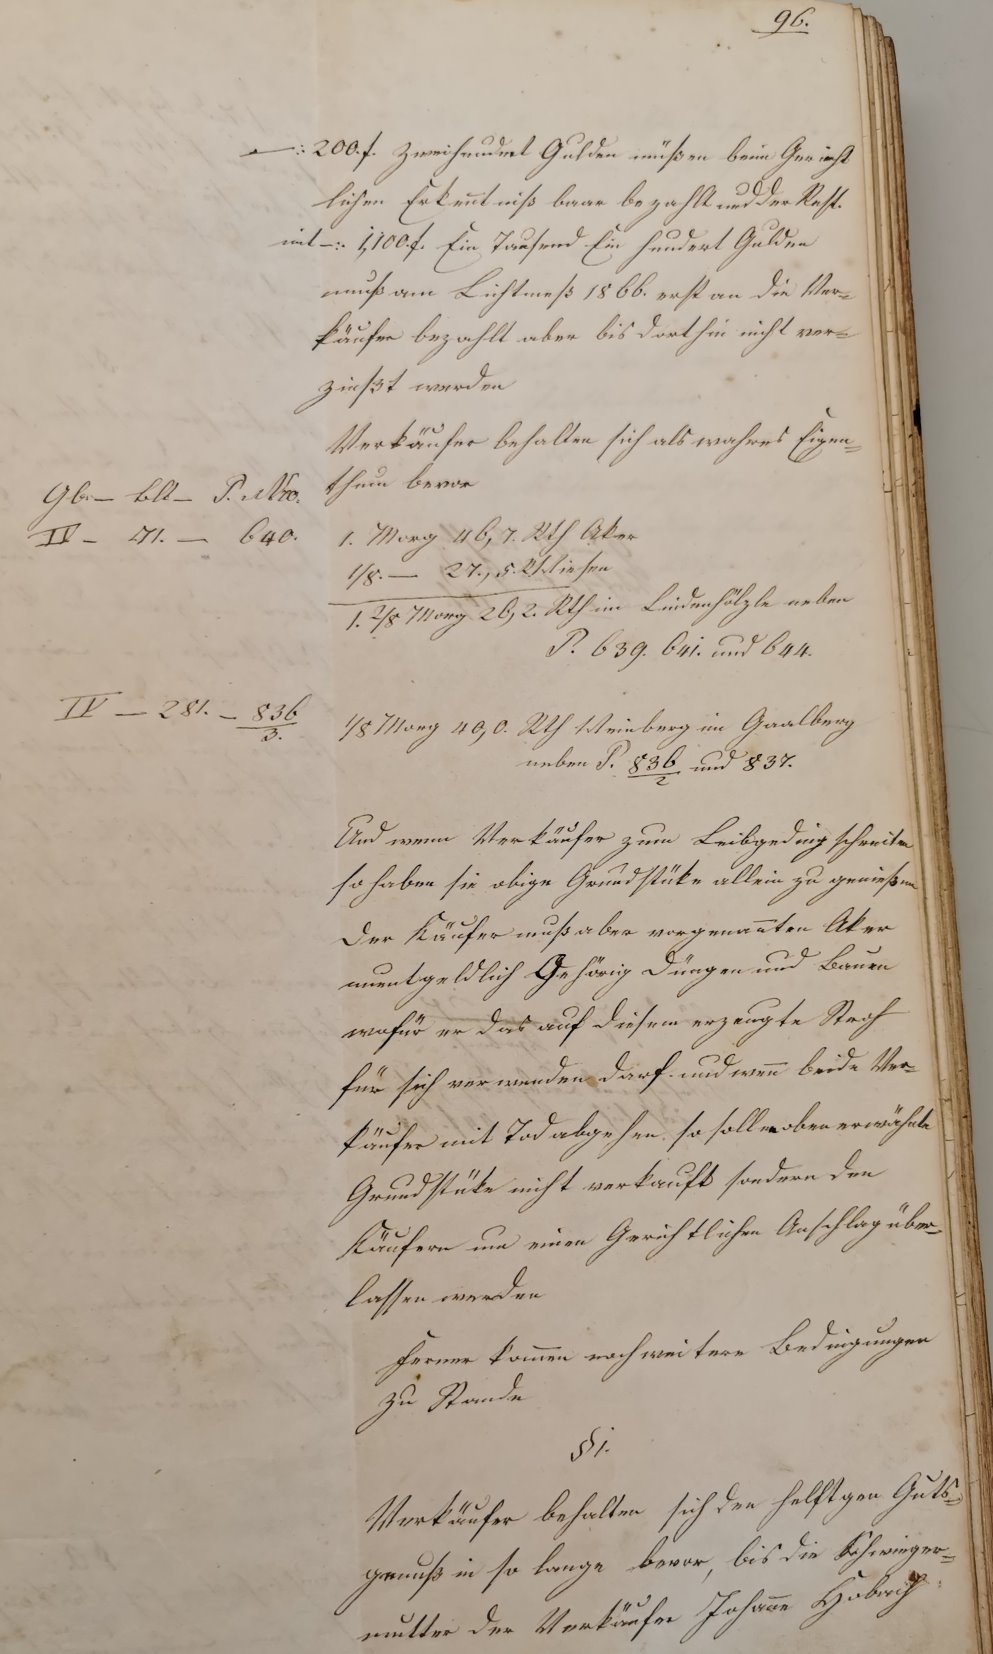 96.
—: 200.f. Zweihundert Gulden müßen beim Gericht
lichen Erkentniß baar bezahlt und der Rest.
mit —: 1,100.f. Ein Tausend Ein hundert Gulden
muß am Lichtmeß 1866. erst an die Ver=
käufer bezahlt aber bis dorthin nicht ver=
zinßt werden
Verkäufer behalten sich als wahres Eigen=
thum bevor
Gb.— Bl.— P. Nro.
IV — 71. — 640.
1. Morg 46,7. Rth Aker
1/8. — 27,5. Rth Wiesen
1. 2/8 Morg 26,2. Rth im Lindenhölzle neben
P. 639. 641. und 644.
IV — 281. — 836/3.
1/8 Morg 40,0. Rth Weinberg im Gaalberg
neben P. 836/2 und 837.
Und wenn Verkäufer zum Leibgeding schreiten
so haben sie obige Grundstüke allein zu genießen
der Käufer muß aber vorgenanten Aker
unentgeldlich Gehörig düngen und bauen
wofür er das auf diesem erzeugte Stroh
für sich verwenden darf und wen beide Ver=
käufer mit Tod abgehen so sollen oben erwähnte
Grundstüke nicht verkauft sondern den
Käufern um einen Gerichtlichen Anschlag über=
lassen werden
Ferner komen noch weitere Bedingungen
zu Stande
§ 1.
Verkäufer behalten sich den helftgen Guts=
genuß in so lange bevor, bis die Schwieger=
mutter der Verkäufer Johane